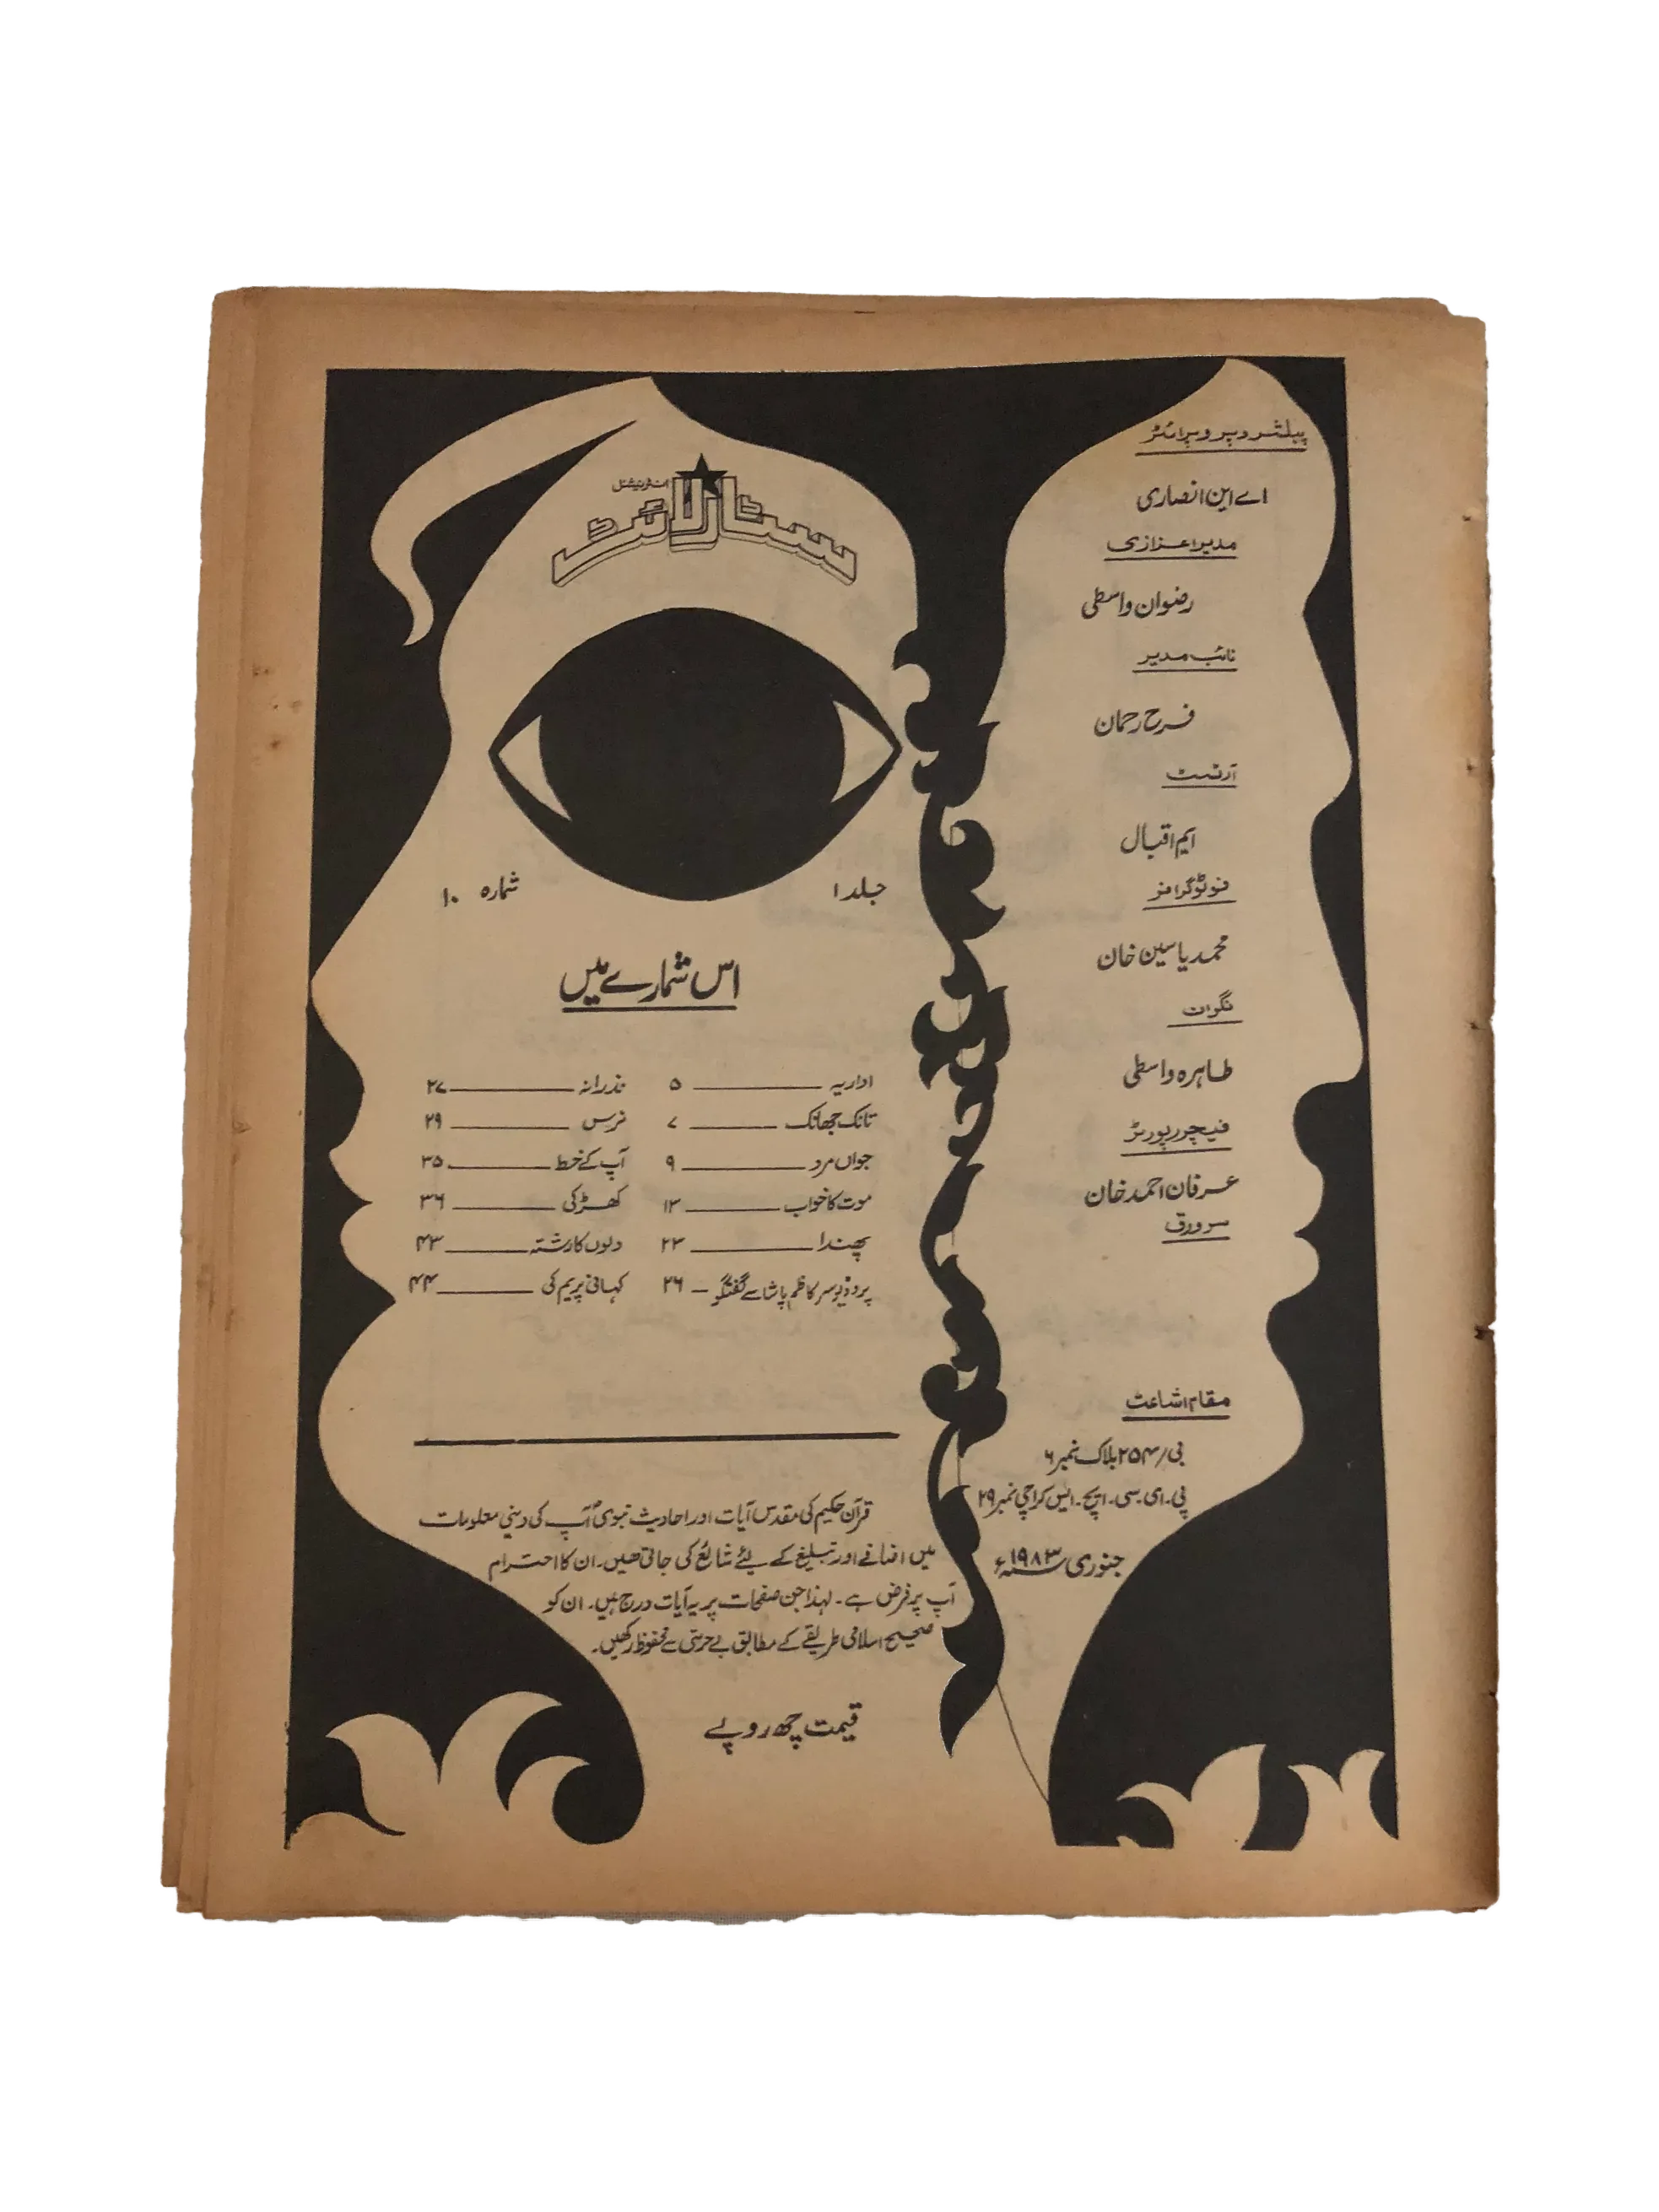 پبلشر و پروپرائٹر
اے این انصاری
مدیر اعزازی
رضوان واسطی
نائب مدیر
فرح رحمان
آرٹسٹ
ایم اقبال
فوٹوگرافر
محمد یاسین خان
نگران
طاہرہ واسطی
فیچر رپورٹر
عرفان احمد خان
سرورق
مقام اشاعت
بی/۲۵۴ بلاک نمبر ۶
پی۔ای۔سی۔ایچ۔ایس کراچی نمبر ۲۹
جنوری ۱۹۸۳ء
انٹرنیشنل
سٹار لائٹ
جلد ۱ شمارہ ۱۰
اس شمارے میں
اداریہ ۵
تانک جھانک ۷
جواں مرد ۹
موت کا خواب ۱۳
پھندا ۲۳
پروڈیوسر کاظم پاشا سے گفتگو ۔ ۲۶
نذرانہ ۲۷
نرس ۲۹
آپ کے خط ۳۵
کھڑکی ۳۶
دلوں کا رشتہ ۴۳
کہانی پریم کی ۴۴
قرآن حکیم کی مقدس آیات اور احادیث نبویؐ آپ کی دینی معلومات
میں اضافے اور تبلیغ کے لئے شائع کی جاتی ھیں۔ ان کا احترام
آپ پر فرض ہے۔ لہٰذا جن صفحات پر یہ آیات درج ہیں۔ ان کو
صحیح اسلامی طریقے کے مطابق بے حرمتی سے محفوظ رکھیں۔
قیمت چھ روپے